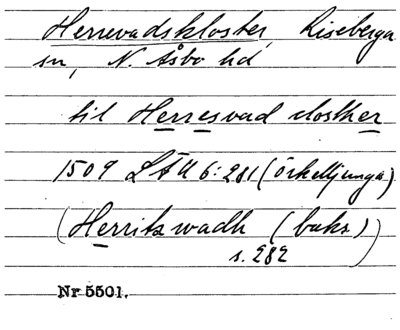 Herrevadskloster, Riseberga
sn, N. Åsbo hd
til Herresvad closther
1509 LÄU 6:281 (Örkelljunga)
(Herritzwadh (baks)
s. 282)
Nr 5501.